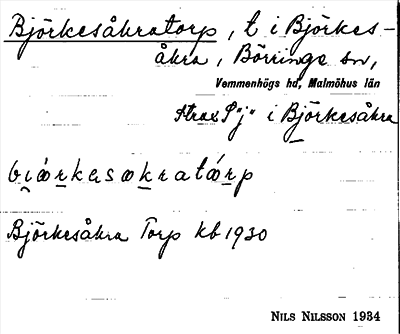 Björkesåkratorp, t. i Björkes-
åkra, Börringe sn,
Vemmenhögs hd, Malmöhus län
strax S "j" i Björkesåkra
Björkesåkra Torp kb 1930
NILS NILSSON 1934